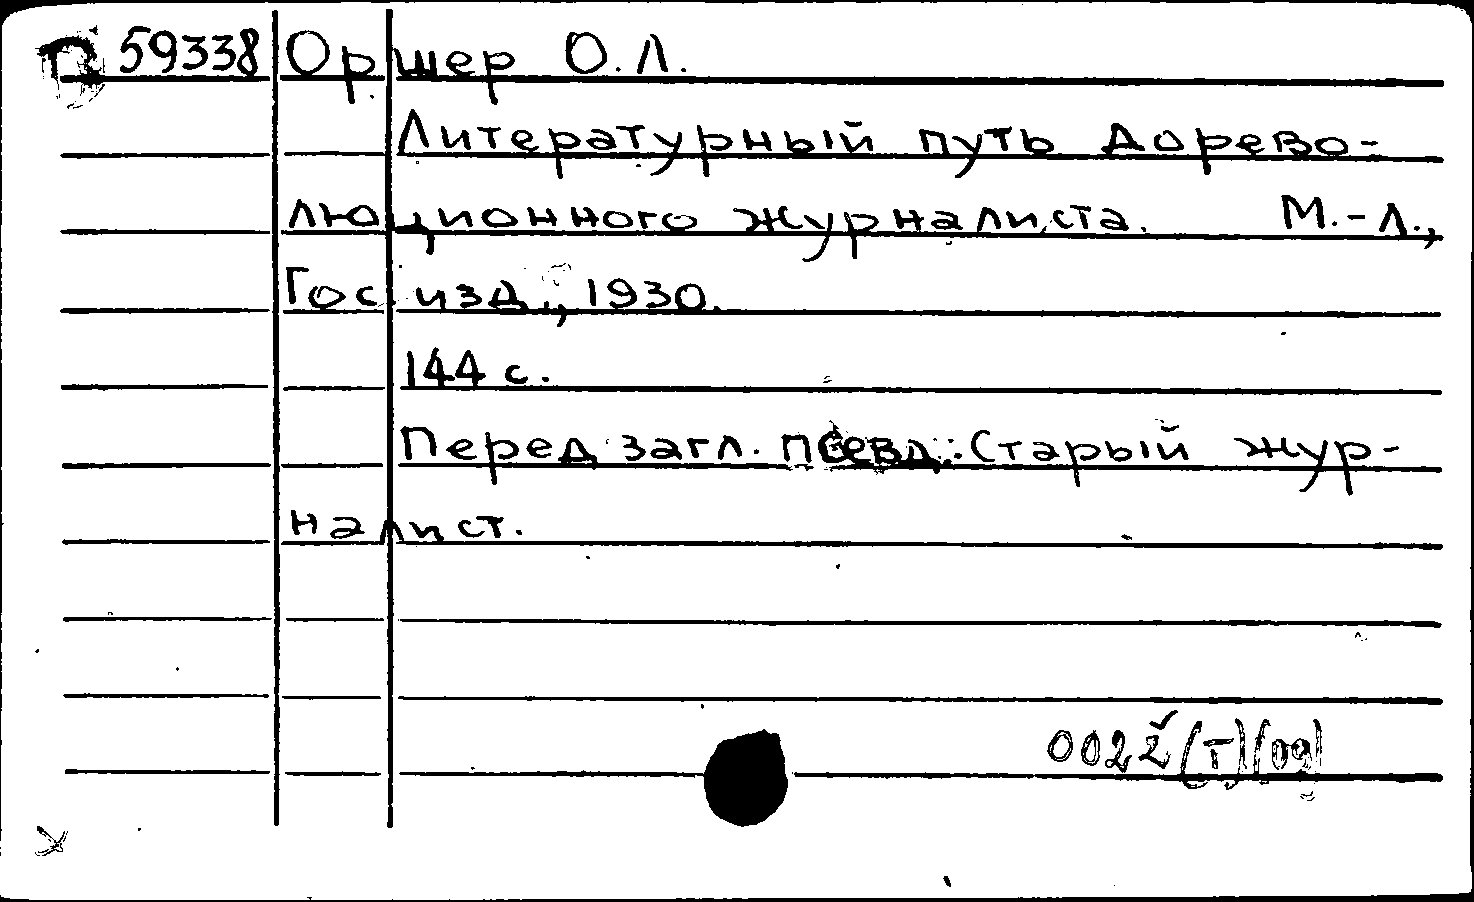 59338 Оршер О.Л.
Литературный путь дорево-
люционного журналиста. М.-Л.,
Гос. изд., 1930.
144 с.
Перед загл. псевд.: Старый жур-
налист.
(Т)(09)